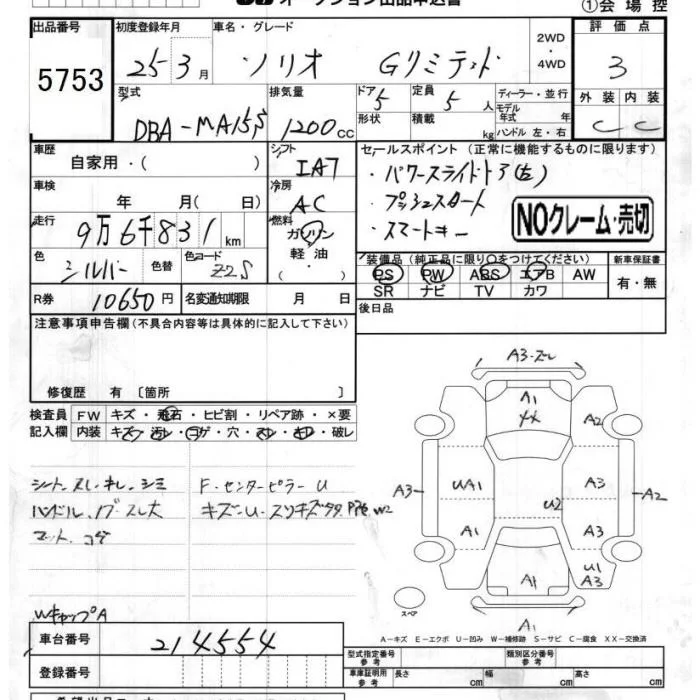 オークション出品申込書
①会場控
出品番号
5753
初度登録年月
25-3月
車名・グレード
ソリオ Gリミテッド
2WD
・
4WD
評価点
3
外装 内装
C C
型式
DBA-MA15S
排気量
1200cc
ドア 5
形状
定員 5人
積載 kg
ディーラー・並行
モデル年式 年
ハンドル 左・右
車歴
自家用・( )
シフト
IA7
車検
年 月( 日)
冷房
AC
走行
9万6千831km
燃料
ガソリン
軽油
・
色
シルバー
色替
色コード
Z2S
R券
10650円
名変通知期限 月 日
セールスポイント(正常に機能するものに限ります)
・パワースライドドア(左)
・プッシュスタート
・スマートキー
NOクレーム・売切
装備品(純正品に限り○をつけてください)
PS PW ABS エアB AW
SR ナビ TV カワ
新車保証書
有・無
後日品
注意事項申告欄(不具合内容等は具体的に記入して下さい)
修復歴 有〔箇所 〕
検査員記入欄
FW キズ・飛石・ヒビ割・リペア跡・×要
内装 キズ・汚レ・コゲ・穴・スレ・キレ・破レ
シート スレ・キレ・シミ
ハンドル・ノブ スレ大
マット コゲ
Wキャップ A
F・センターピラー U
キズ・U・スリキズ
A3・スレ
A1
XX
A2
A3
UA1
A3
U2
A2
A1
A3
U1
A3
A1
A1
スペア
A-キズ E-エクボ U-凹み W-補修跡 S-サビ C-腐食 XX-交換済
車台番号
214554
登録番号
型式指定番号
参考
類別区分番号
参考
車庫証明用
参考
長さ cm
幅 cm
高さ cm